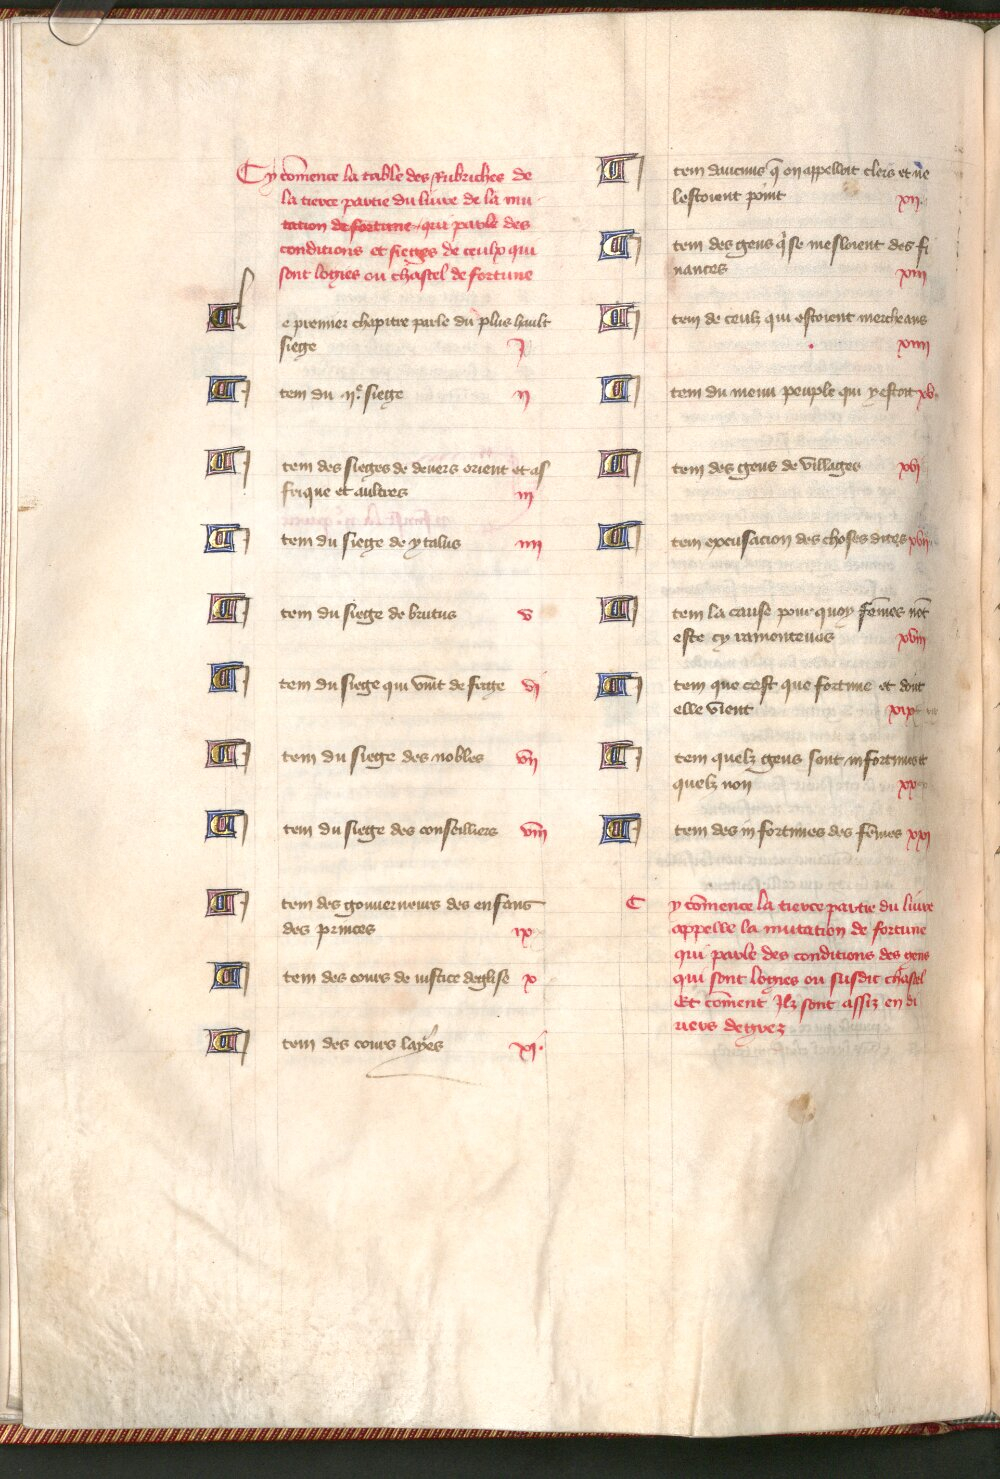 Cy cõmence la table des Rubriches de
la tierce partie du livre de la mu
tacion de fortune qui parle des
conditions et sieges de ceulx qui
sont logies ou chastel de fortune
Le premier chapitre parle du plus hault
siege j
tem du ije siege ij
tem des sieges de devers orient et af
frique et aultres iij
tem du siege de ytalus iiij
tem du siege de brutus v
tem du siege qui vint de sage vj
tem du siege des nobles vij
tem du siege des conseilliers viij
tem des gouverneurs des enfans
des princes ix
tem des cours de iustice deglise x
tem des cours layes xj
tem daucuns q̃ on appelloit clers et ne
lestoient point xij
tem des gens q̃ se mesloient des fi
nances xiij
tem de ceulz qui estoient marcheans
xiiij
tem du menu peuple qui y estoit xv
tem des gens de villages xvj
tem excusacion des choses dites xvij
tem la cause pour quoy fẽmes nõt
este cy ramenteues xviij
tem que cest que fortune et dõt
elle vient xix
tem quelz gens sont infortunes et
quelz non xx
tem des infortunes des fẽmes xxj
Cy cõmence la tierce partie du livre
appelle la mutation de fortune
qui parle des conditions des gens
qui sont logies ou susdit chastel
Et cõment Ilz sont assiz en di
vers degrez